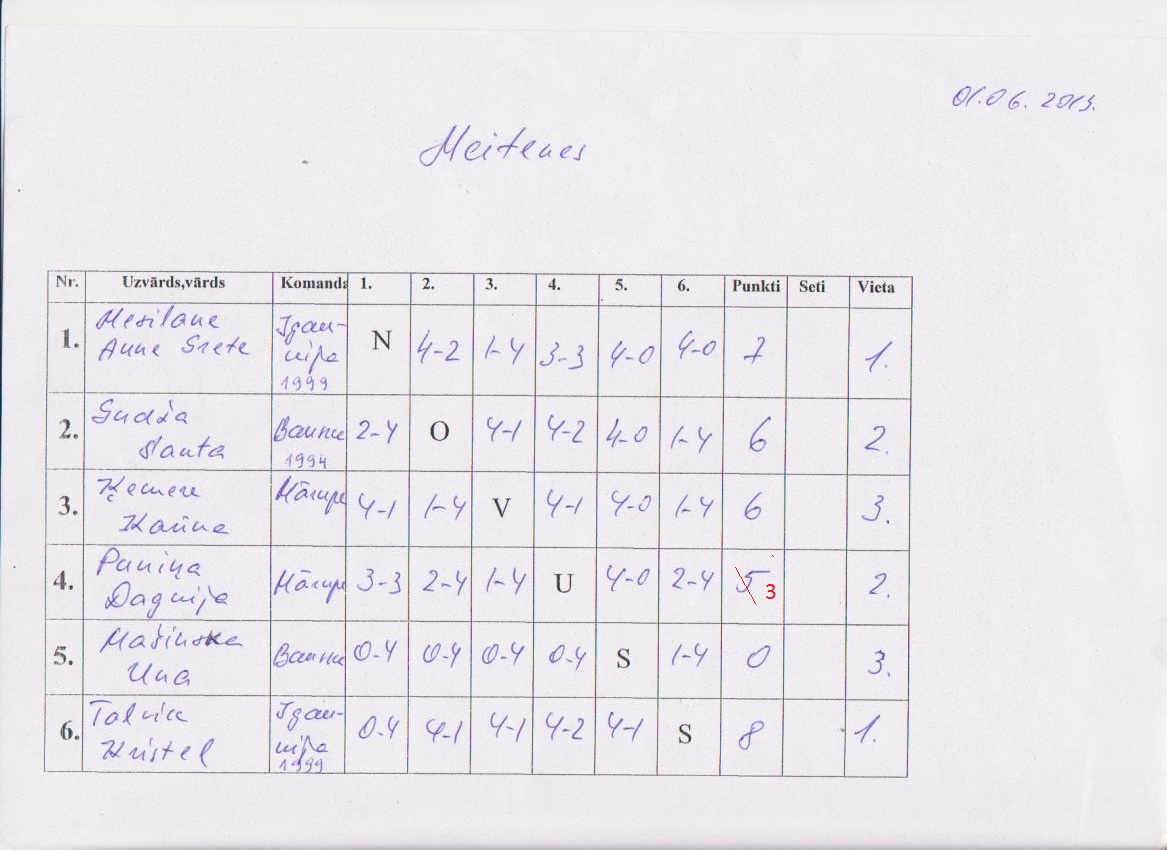 01.06. 2013.
Meitenes
Nr. Uzvārds,vārds Komanda 1. 2. 3. 4. 5. 6. Punkti Seti Vieta
1. Mesilane Anne Grete Igaunija 1999 N 4-2 1-4 3-3 4-0 4-0 7 1.
2. Santa Baune 1994 2-4 O 4-1 4-2 4-0 1-4 6 2.
3. Ķemere Karina Mārupe 4-1 1-4 V 4-1 4-0 1-4 6 3.
4. Puniņa Dagnija Mārupe 3-3 2-4 1-4 U 4-0 2-4 5 3 2.
5. Mašinska Una Baune 0-4 0-4 0-4 0-4 S 1-4 0 3.
6. Talvik Kristel Igaunija 1999 0-4 4-1 4-1 4-2 4-1 S 8 1.